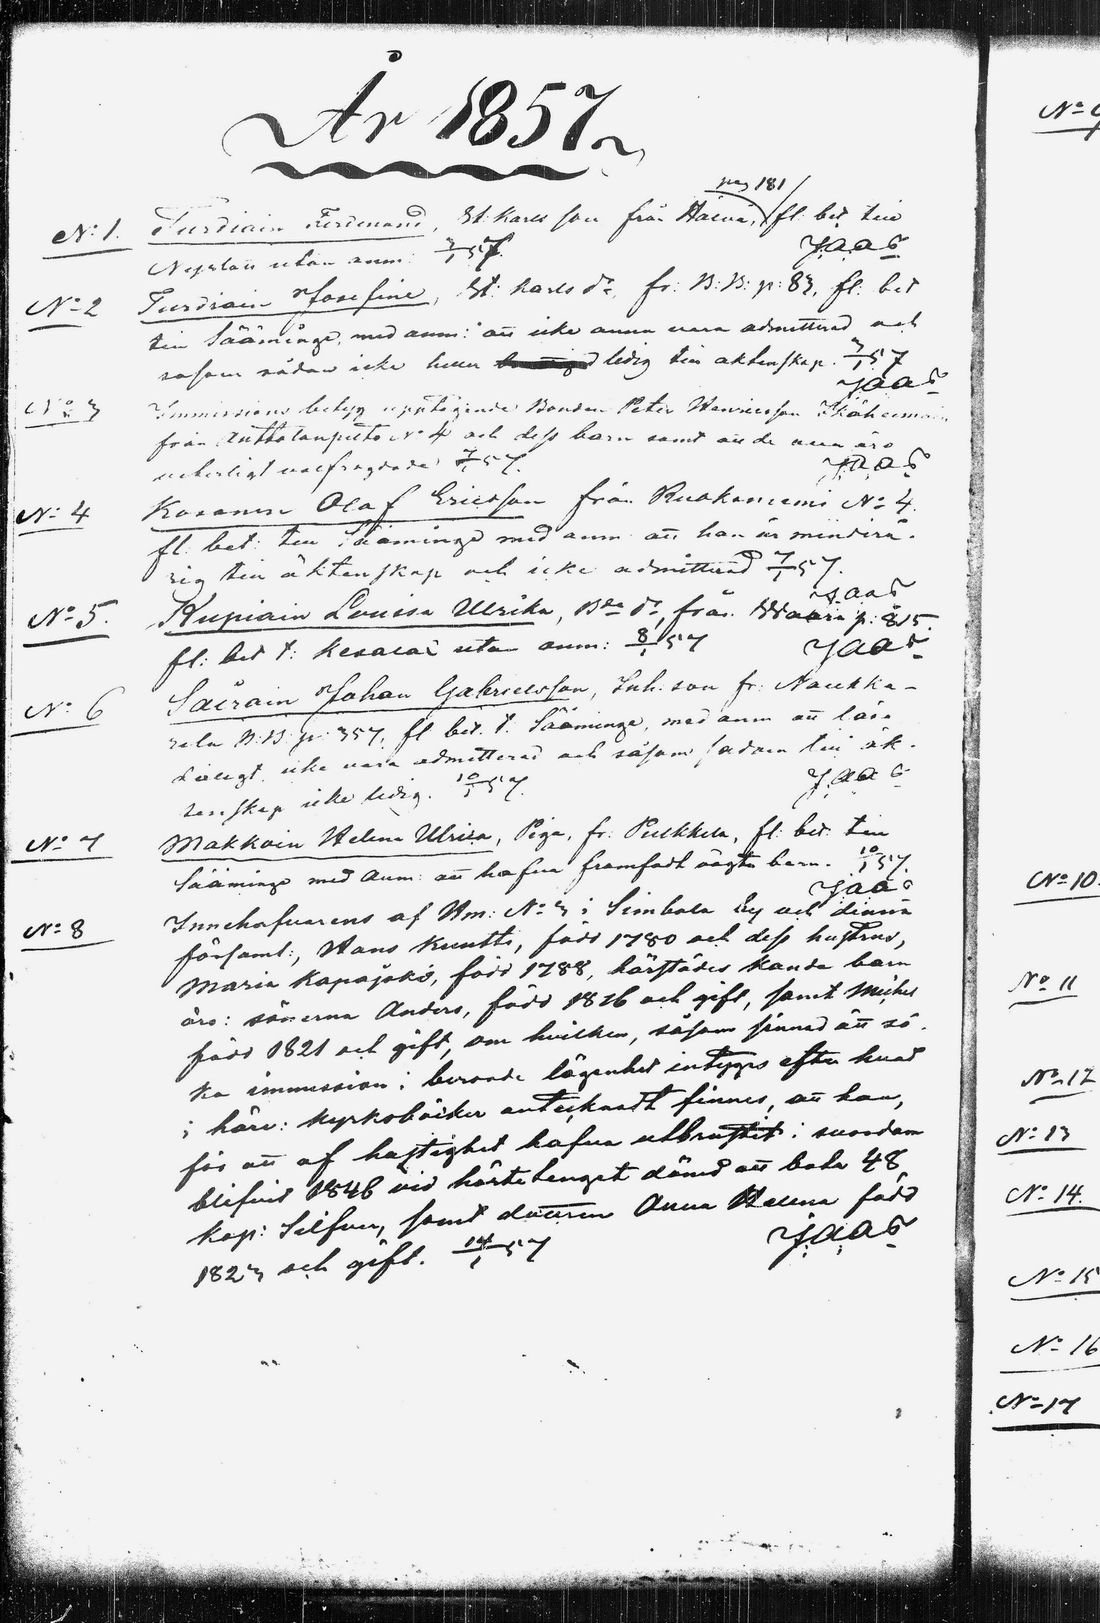 År 1857
pag 181
No 1. Turdiain Ferdinand, St: Karls son från Haena, fl: bet till
Nyslott utan anm: 3/1 57. JAAS
No 2 Turdiain Josefine, St: Karls dr, fr: B:B: p: 83, fl: bet
till Sääminge, med anm: att icke ännu vara admitterad och
såsom sådan icke heller ledig till äktenskap. 3/1 57
JAAS
No 3 Immissions betyg upptagande Bonden Peter Henricsson
från No 4 och dess barn samt att de alla äro
välfrägdade 7/1 57. JAAS
No 4 Kosonen Olof Ericsson från Ruokoniemi No 4.
fl: bet: till Sääminge med anm att han är mindreå-
rig till äktenskap och icke admitterad 7/1 57.
JAAS
No 5. Kupiain Lovisa Ulrika, Bde dr, från p: 815.
fl: bet t: Kesälax utan anm: 8/1 57 JAAS
No 6 Sairain Johan Gabrielsson, Inh. son fr: Naukka-
rila B:B: p: 357, fl bet. t. Sääminge, med anm att
icke vara admitterad och såsom sådan till äk-
tenskap icke ledig. 10/1 57. JAAS
No 7 Makkoin Helena Ulrica, Piga, fr: Pulkkila, fl: bet: till
Sääminge med Anm: att hafva framfödt oägta barn. 10/1 57.
JAAS
No 8 Innehafvarens af Hm: No 3 i Simbala By och denna
församl:, Hans Kuntti, född 1780 och dess hustrus,
Maria Kapajoki, född 1788, härstädes kända barn
äro: sönerna Anders, född 1816 och gift, samt Michel
född 1821 och gift, om hvilken, såsom sinnad att sö-
ka immission i berörde lägenhet intygas efter hvad
i härv: kyrkoböcker antecknadt finnes, att han,
för att af hastighet hafva utbrustit i svordom
blifvit 1846 vid häradstinget dömd att böta 48
kop: Silfver, samt dottren Anna Helena född
1823 och gift. 14/1 57 JAAS
No 9
No 10.
No 11
No 12
No 13
No 14.
No 15
No 16
No 17